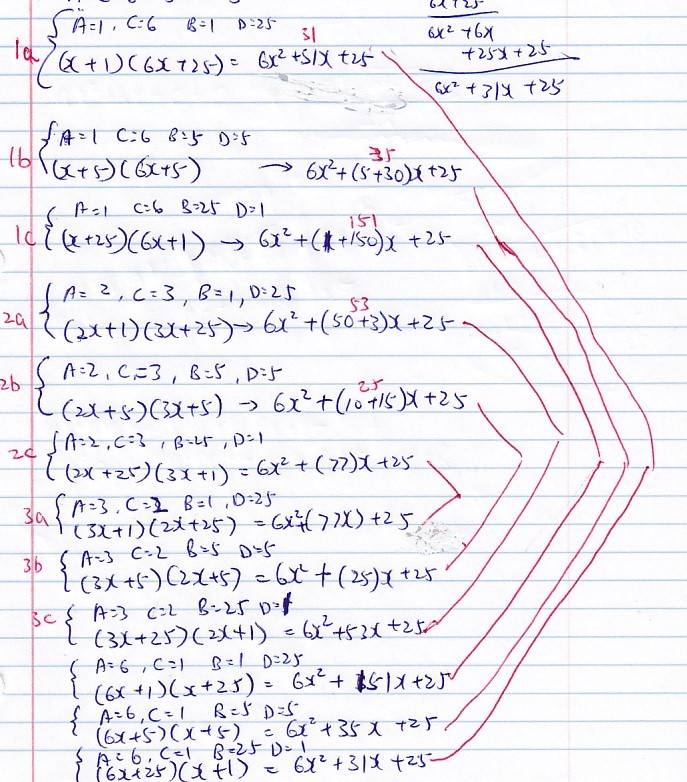 6x+25
6x² + 6x
+25x + 25
6x² + 31x + 25
1a
A=1, C=6 B=1 D=25
31
(x+1)(6x+25) = 6x² + 31x + 25
1b
A=1 C=6 B=5 D=5
35
(x+5)(6x+5) → 6x² + (5+30)x + 25
1c
A=1 C=6 B=25 D=1
151
(x+25)(6x+1) → 6x² + (1+150)x + 25
2a
A=2, C=3, B=1, D=25
53
(2x+1)(3x+25) → 6x² + (50+3)x + 25
2b
A=2, C=3, B=5, D=5
25
(2x+5)(3x+5) → 6x² + (10+15)x + 25
2c
A=2, C=3, B=25, D=1
(2x+25)(3x+1) = 6x² + (77)x + 25
3a
A=3, C=2 B=1, D=25
(3x+1)(2x+25) = 6x² + (77x) + 25
3b
A=3 C=2 B=5 D=5
(3x+5)(2x+5) = 6x² + (25)x + 25
3c
A=3 C=2 B=25 D=1
(3x+25)(2x+1) = 6x² + 53x + 25
A=6, C=1 B=1 D=25
(6x+1)(x+25) = 6x² + 151x + 25
A=6, C=1 B=5 D=5
(6x+5)(x+5) = 6x² + 35x + 25
A=6, C=1 B=25 D=1
(6x+25)(x+1) = 6x² + 31x + 25